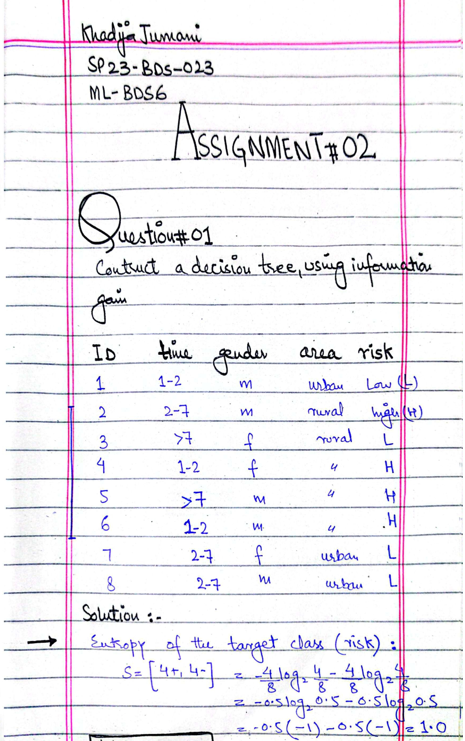 Khadija Jumani
SP23-BDS-023
ML-BDS6
ASSIGNMENT#02
Question#01
Contruct a decision tree, using information
gain
ID time gender area risk
1 1-2 m urban Low (L)
2 2-7 m rural high (H)
3 >7 f rural L
4 1-2 f " H
5 >7 m " H
6 1-2 m " H
7 2-7 f urban L
8 2-7 m urban L
Solution :-
→ Entropy of the target class (risk) :
S = [4+, 4-] = -4/8 log₂ 4/8 - 4/8 log₂ 4/8
= -0.5 log₂ 0.5 - 0.5 log₂ 0.5
= -0.5(-1) - 0.5(-1) = 1.0